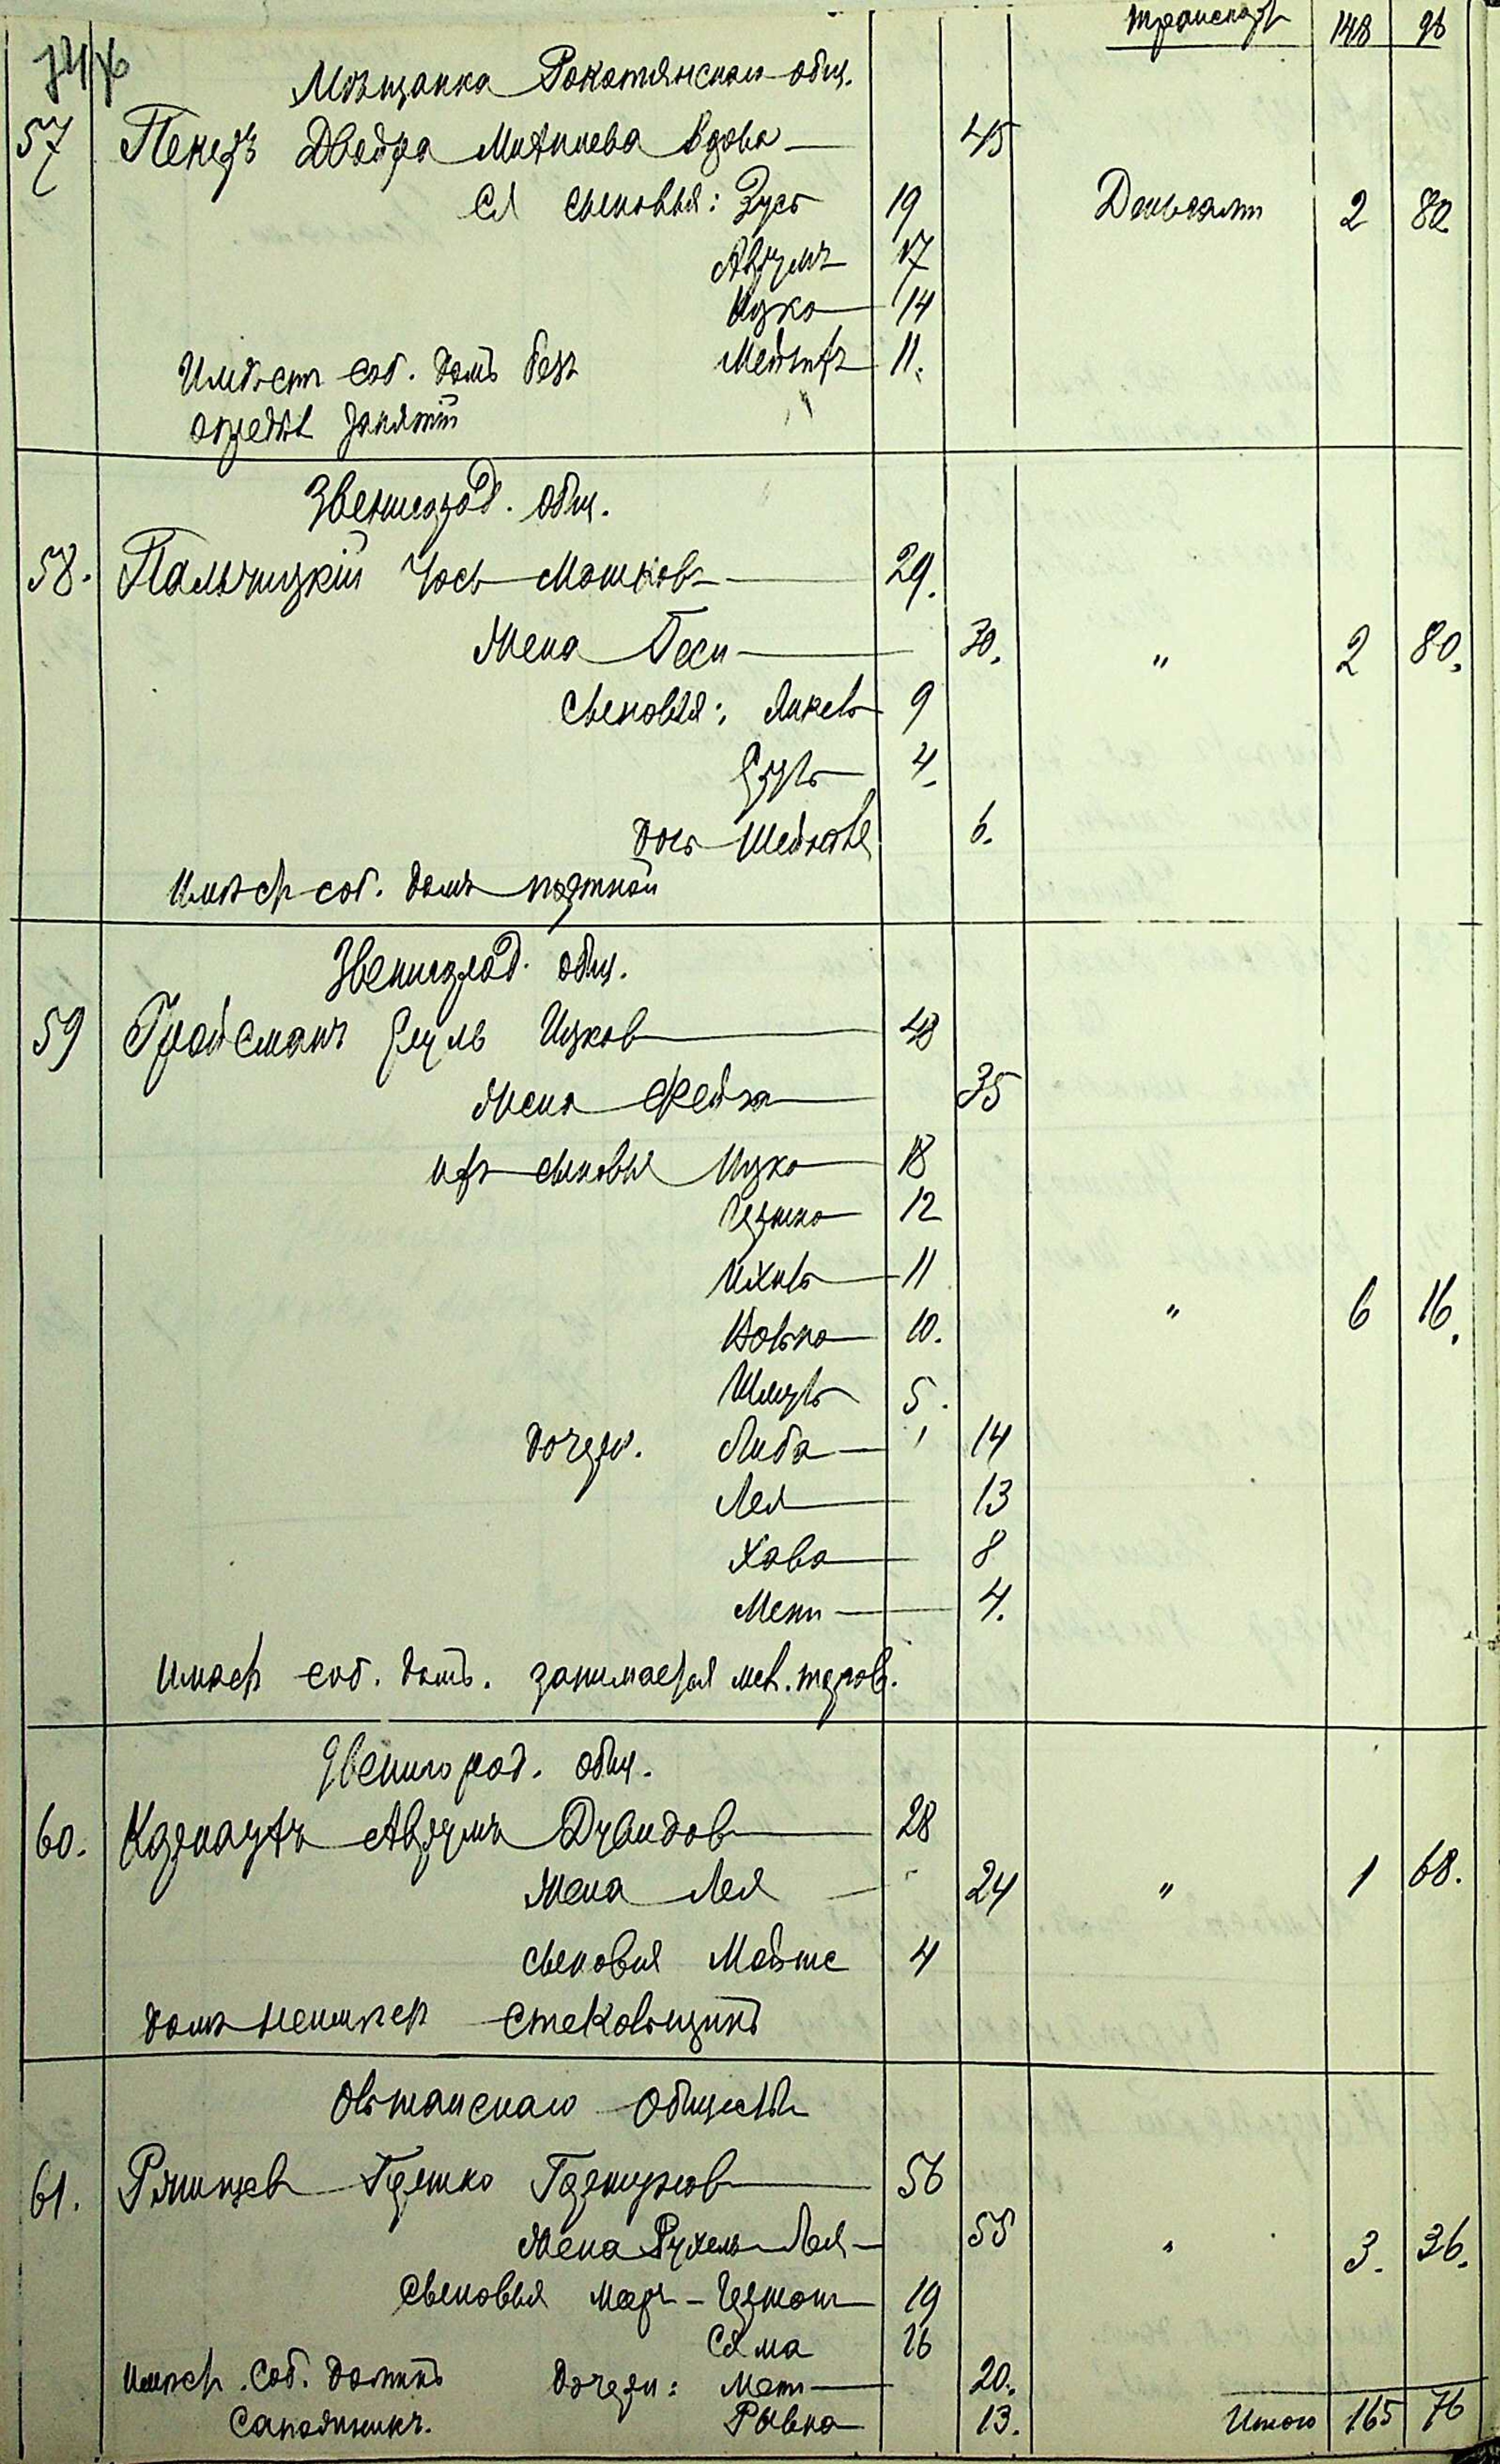 транспортъ 148 96
Мѣщанка Рокитянскаго общ.
57 Двойра вдова — 45
Ея сыновья: Зусь 19 2 80
Аврумъ 17
Ицко — 14
Имѣетъ соб. домъ безъ 11.
опредѣл занятій
Звенигород. общ.
58. Пальчицкій Іось Мошков — 29.
Жена Песи — 30. " 2 80.
Сыновья: Янкель 9
Сруль — 4.
дочь Шейндля 6.
Имѣетъ соб. домъ портной
Звенигород. общ.
59 Гройсманъ Сруль Ицков — 48
Жена Фейга — 35
ихъ сыновья Ицко — 18
Гершко — 12
Ихиль — 11
Волько — 10. " 6 16.
Шмуль 5.
дочери. Либа — 14
Лея — 13
Хава — 8
Мени — 4.
Имѣетъ соб. домъ. занимается мел. торгов.
Звенигород. общ.
60. Аврумъ Дувидов — 28
Жена Лея — 24 " 1 68.
сыновья Мойше 4
домъ неимѣетъ стекольщикъ
Ольшанскаго Общества
61. Гершко — 56
Жена Рухель-Лея — 55 " 3. 36.
Сыновья Меер-Гершон — 19
Сяма 16
Имѣетъ соб. домикъ дочери: Мени — 20.
Сапожникъ. Ривка — 13. Итого 165 76